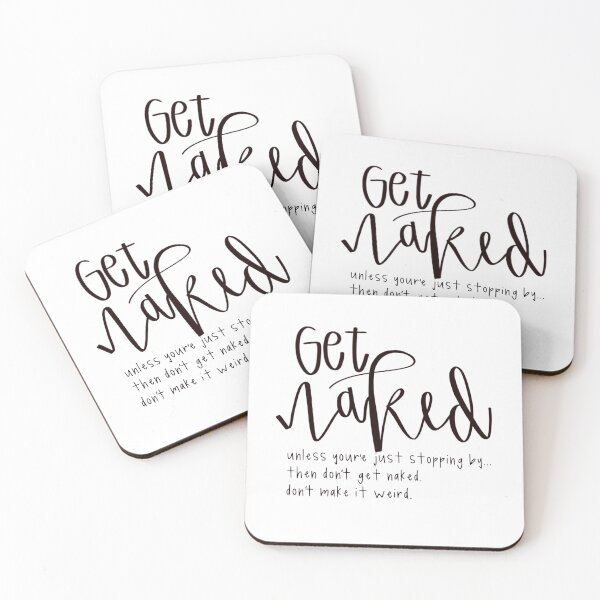 Get
naked
Get
naked
unless your'e just stopping by...
then don't
Get
naked
unless your'e just
then don't get naked.
don't make it weird.
Get
naked
unless your'e just stopping by...
then don't get naked.
don't make it weird.